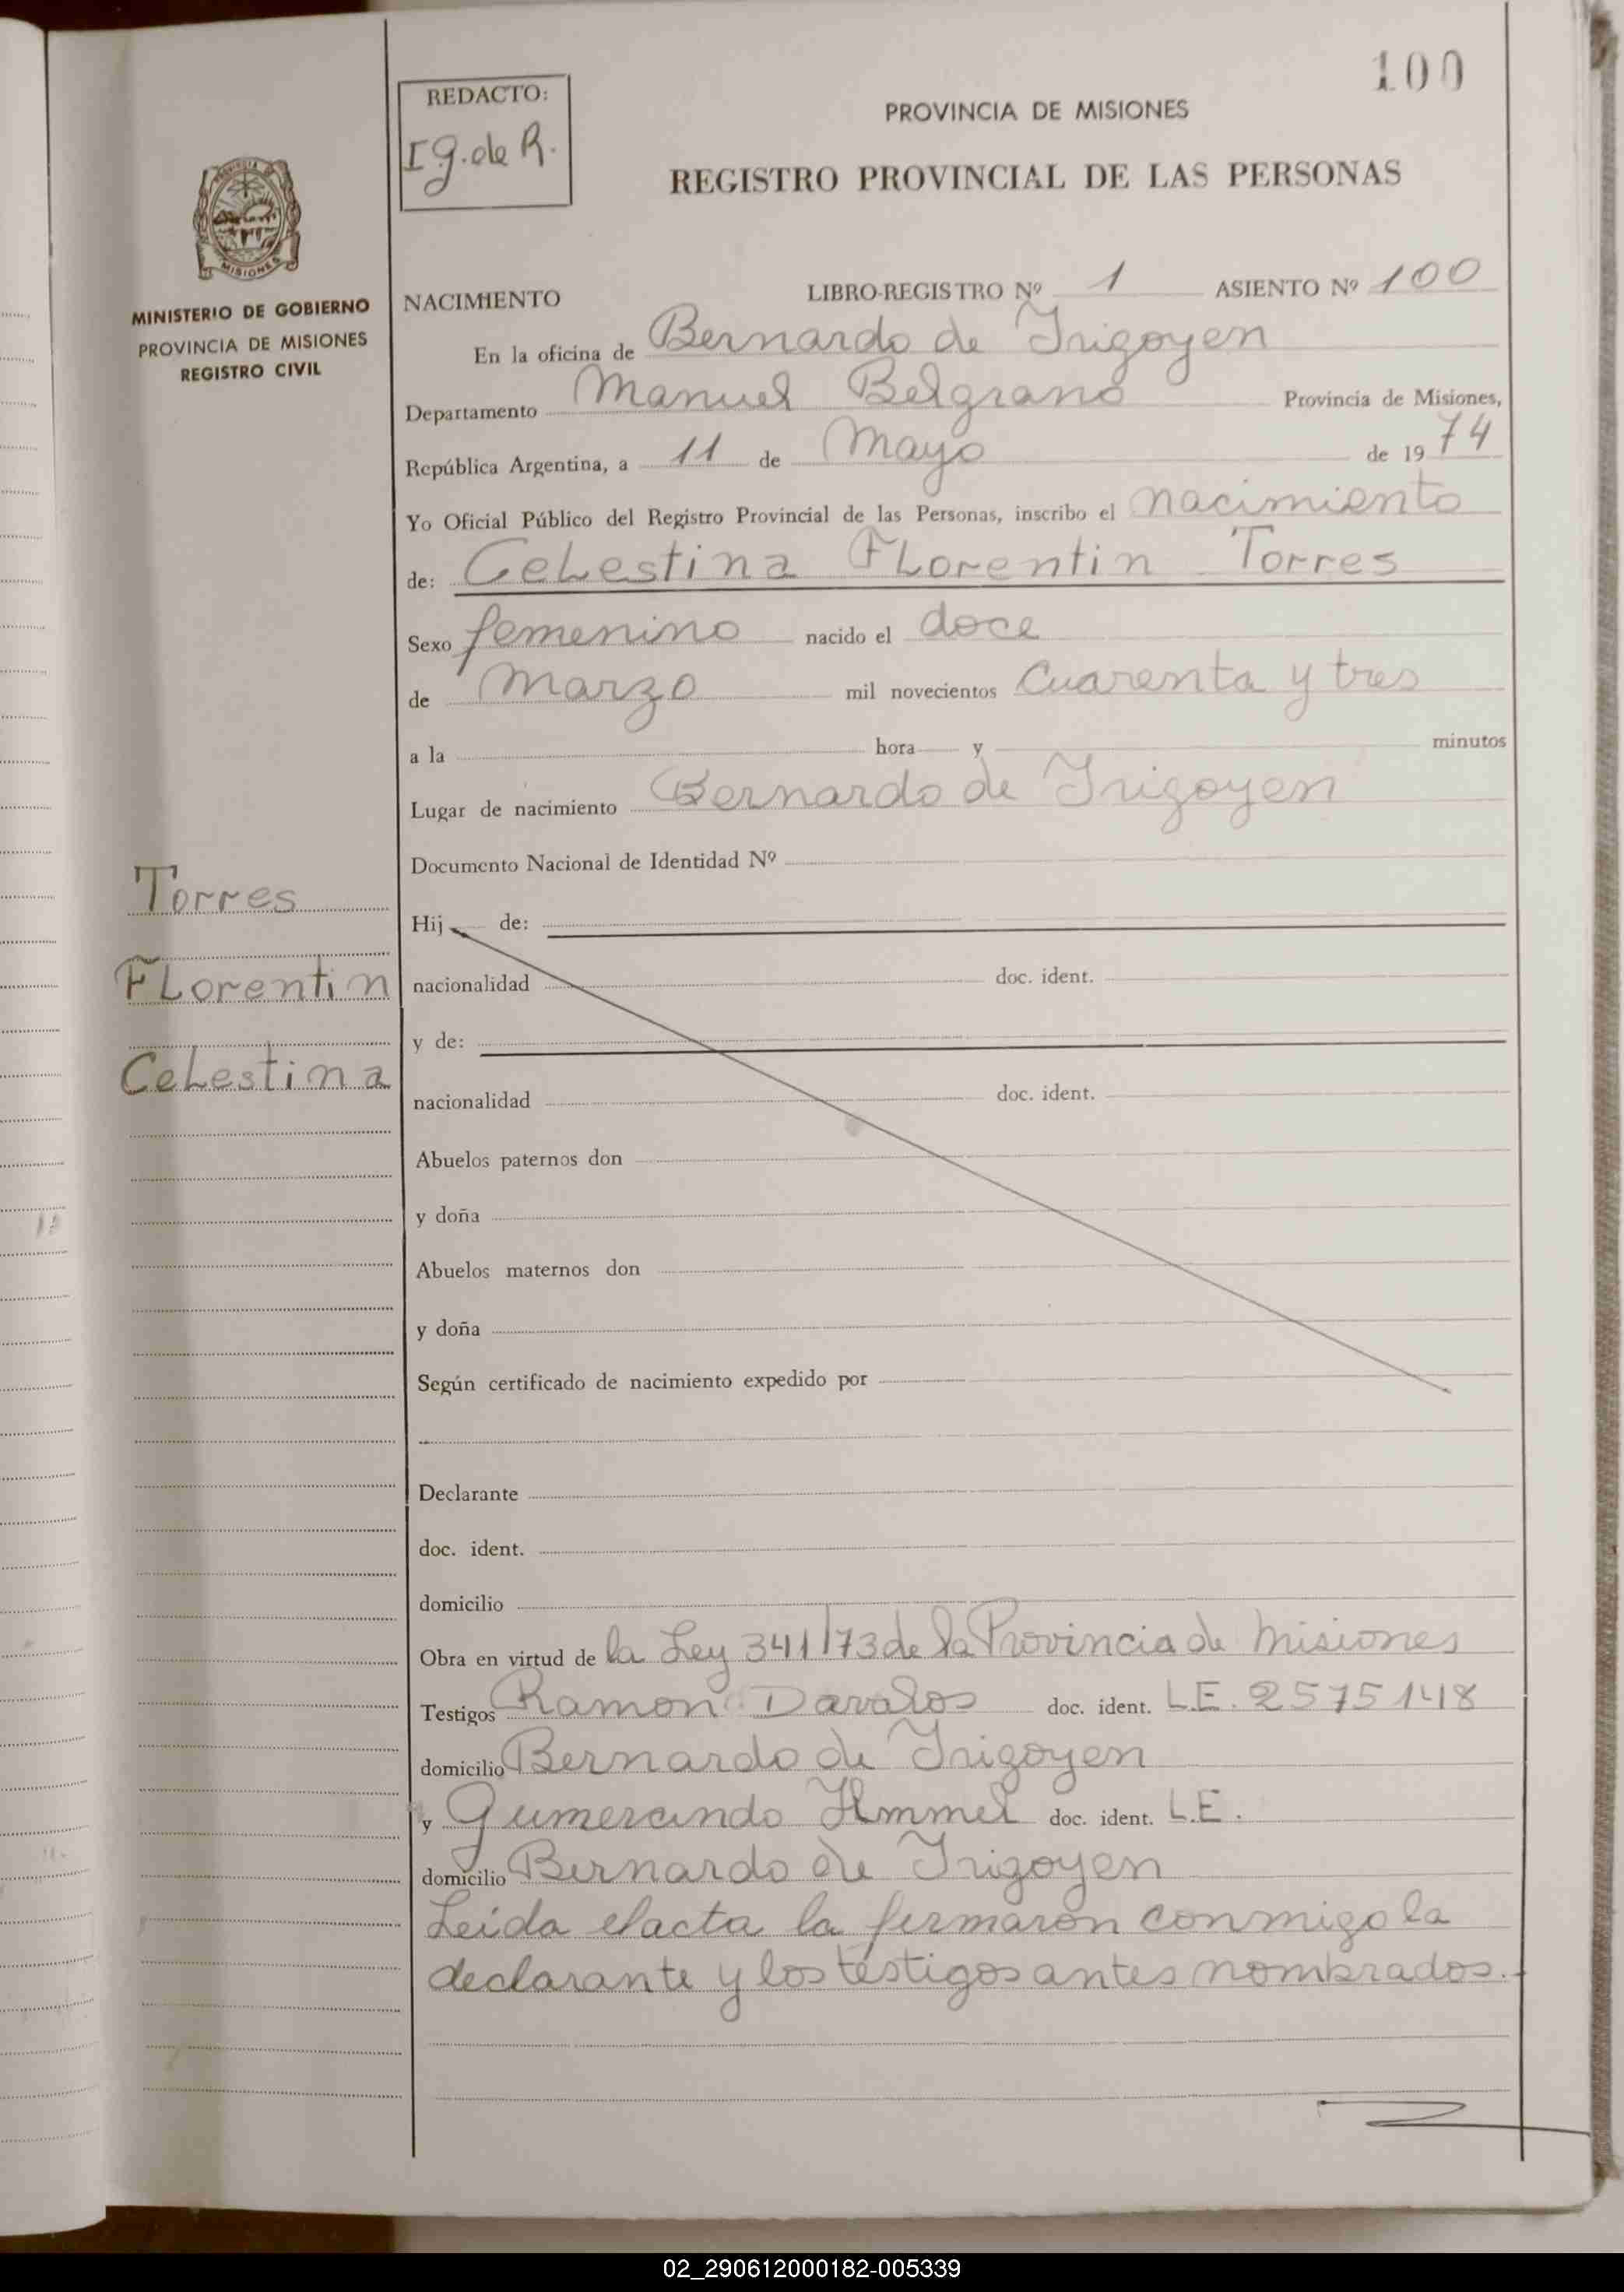 100
REDACTO:
I g. de R.
PROVINCIA DE MISIONES
REGISTRO PROVINCIAL DE LAS PERSONAS
MISIONES
MINISTERIO DE GOBIERNO
PROVINCIA DE MISIONES
REGISTRO CIVIL
NACIMIENTO LIBRO-REGISTRO Nº 1 ASIENTO Nº 100
En la oficina de Bernardo de Irigoyen
Departamento Manuel Belgrano Provincia de Misiones,
República Argentina, a 11 de Mayo de 1974
Yo Oficial Público del Registro Provincial de las Personas, inscribo el nacimiento
de: Celestina Florentin Torres
Sexo femenino nacido el doce
de Marzo mil novecientos Cuarenta y tres
a la hora y minutos
Lugar de nacimiento Bernardo de Irigoyen
Documento Nacional de Identidad Nº
Torres
Florentin
Celestina
Hij de:
nacionalidad doc. ident.
y de:
nacionalidad doc. ident.
Abuelos paternos don
y doña
Abuelos maternos don
y doña
Según certificado de nacimiento expedido por
Declarante
doc. ident.
domicilio
Obra en virtud de la Ley 341/73 de la Provincia de Misiones
Testigos Ramon Davalos doc. ident. L.E. 2575148
domicilio Bernardo de Irigoyen
y Gumercindo Himmel doc. ident. L.E.
domicilio Bernardo de Irigoyen
Leida el acta la firmaron conmigo la
declarante y los testigos antes nombrados.
02_290612000182-005339